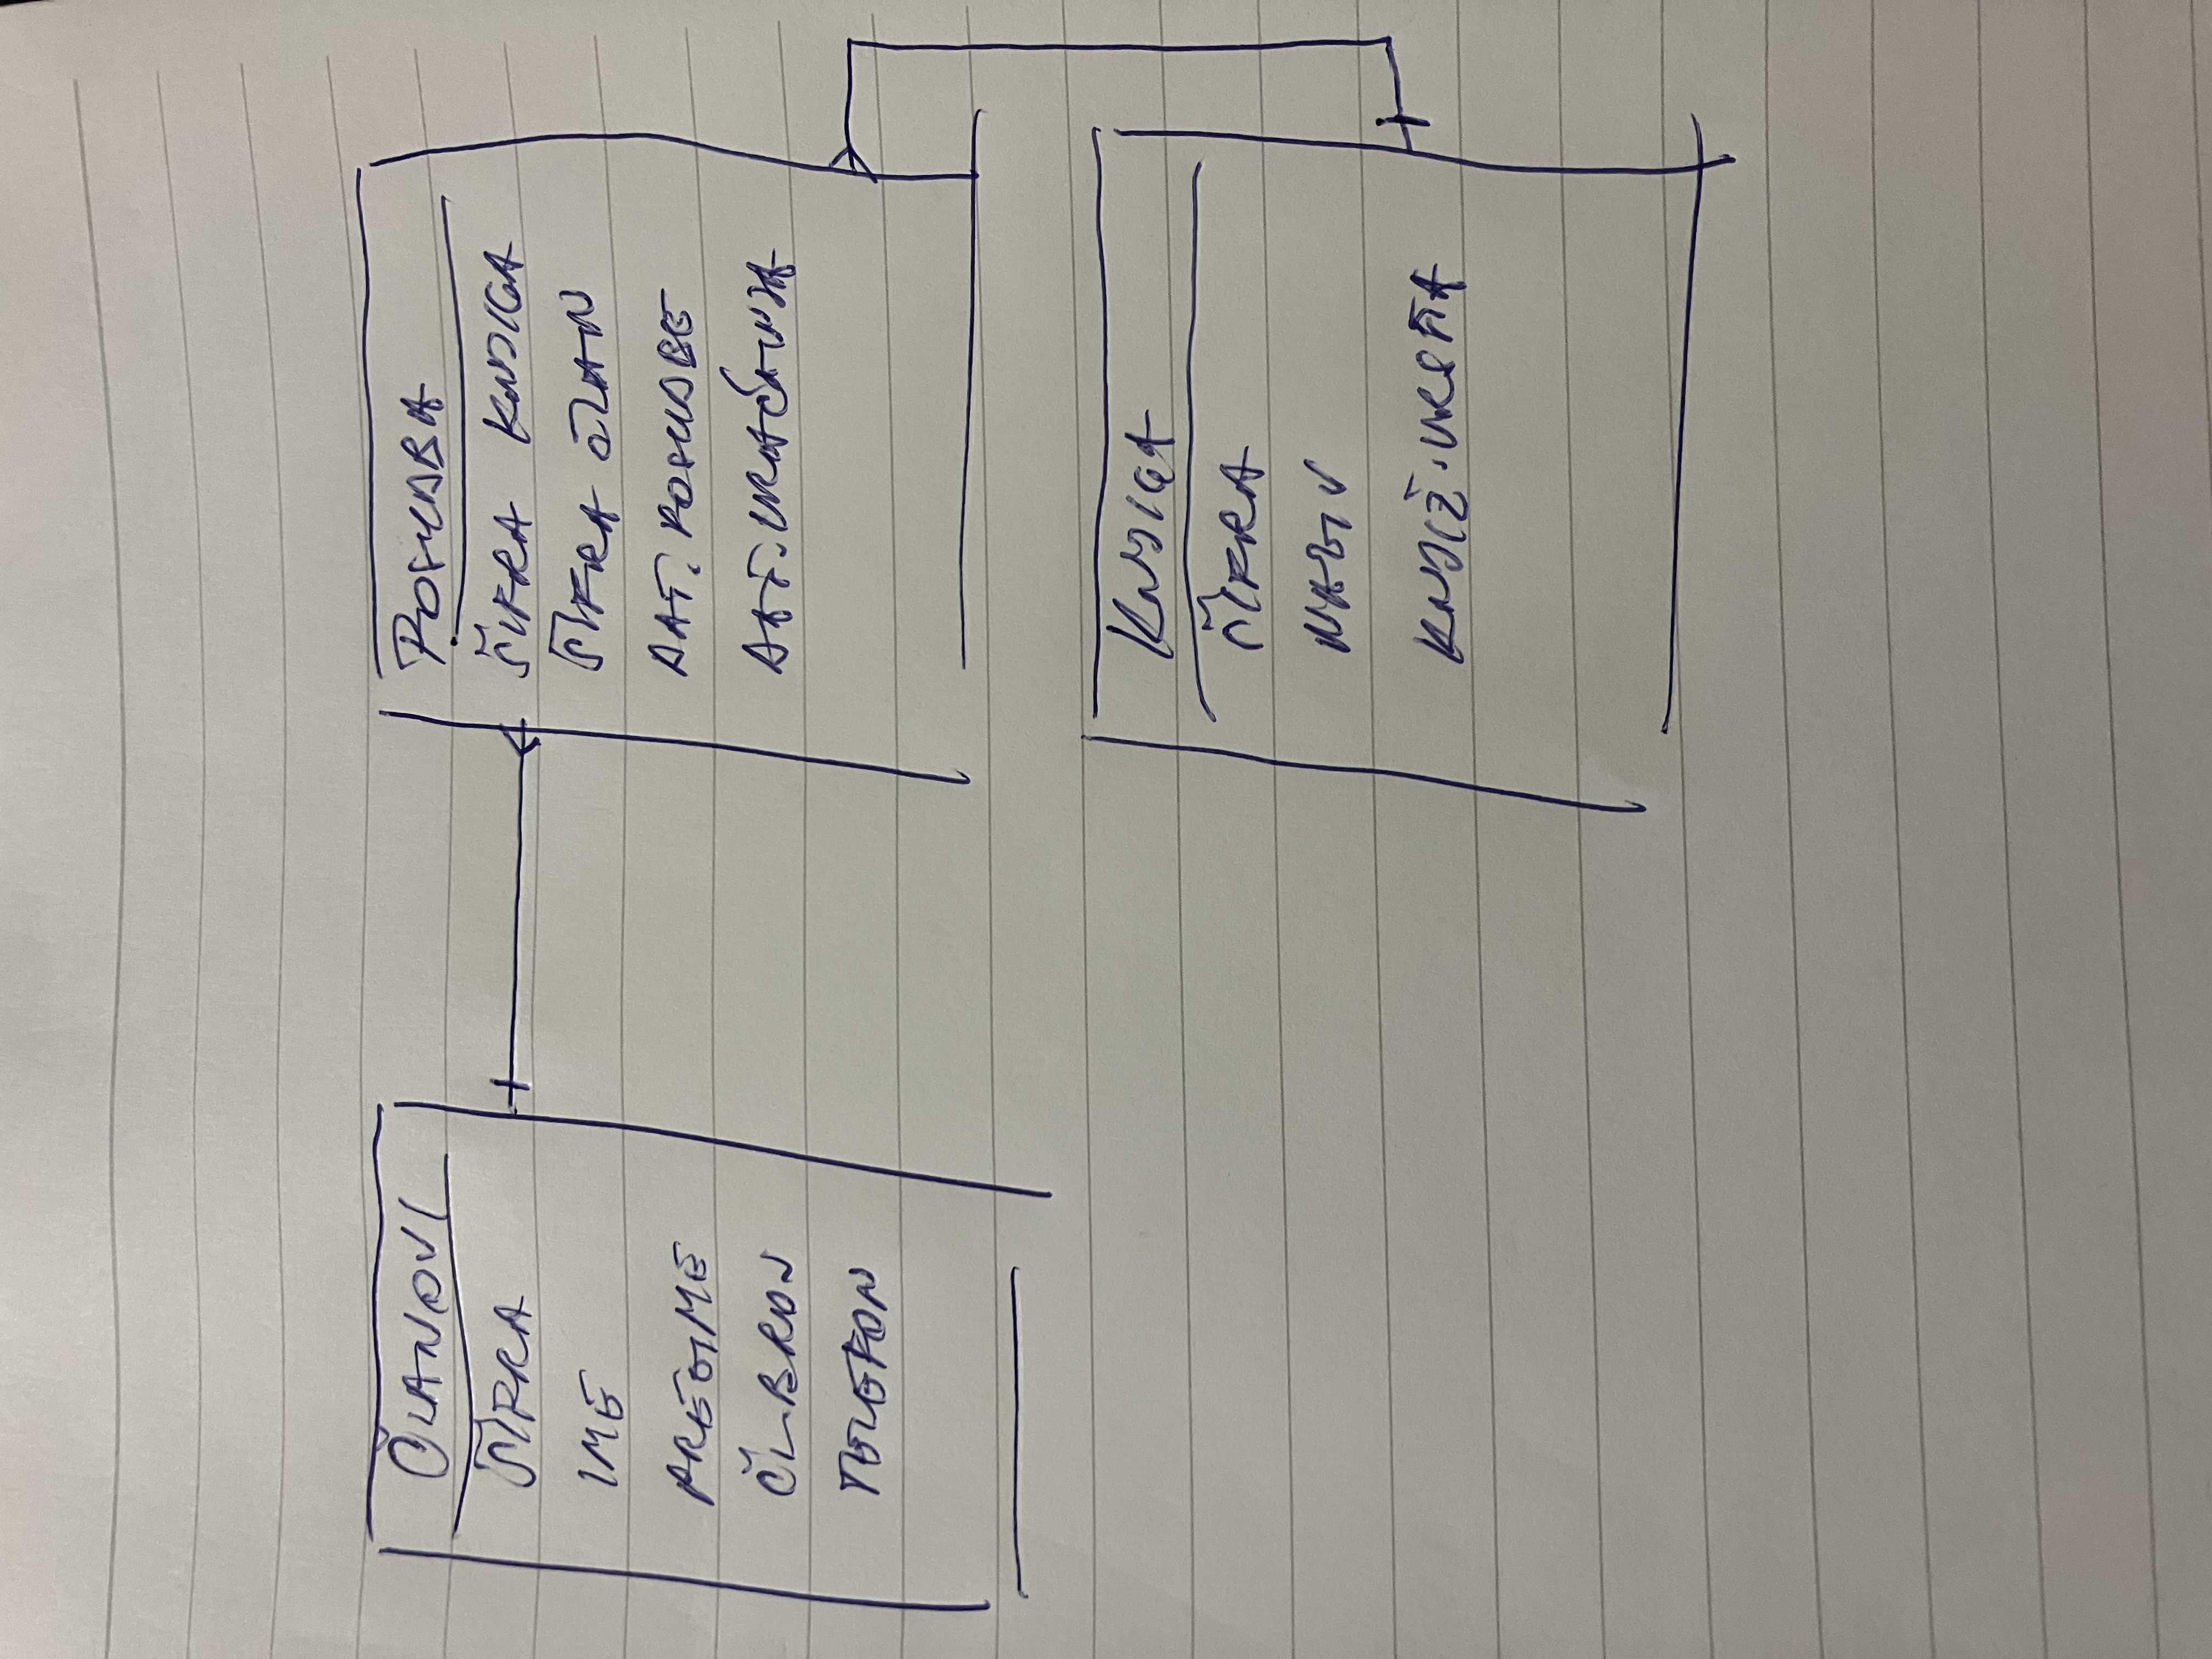 ČLANOVI
ŠIFRA
IME
PREZIME
ČL.BROJ
TELEFON
POSUDBA
ŠIFRA KNJIGA
ŠIFRA ČLAN
DAT. POSUDBE
DAT. VRAĆANJA
KNJIGA
ŠIFRA
NAZIV
KNJIŽ. VRSTA